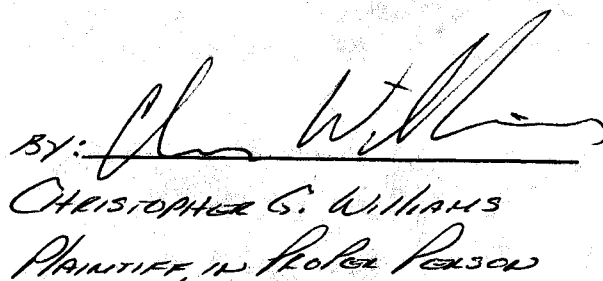 By: Chris Williams
CHRISTOPHER G. WILLIAMS
PLAINTIFF, IN PROPER PERSON